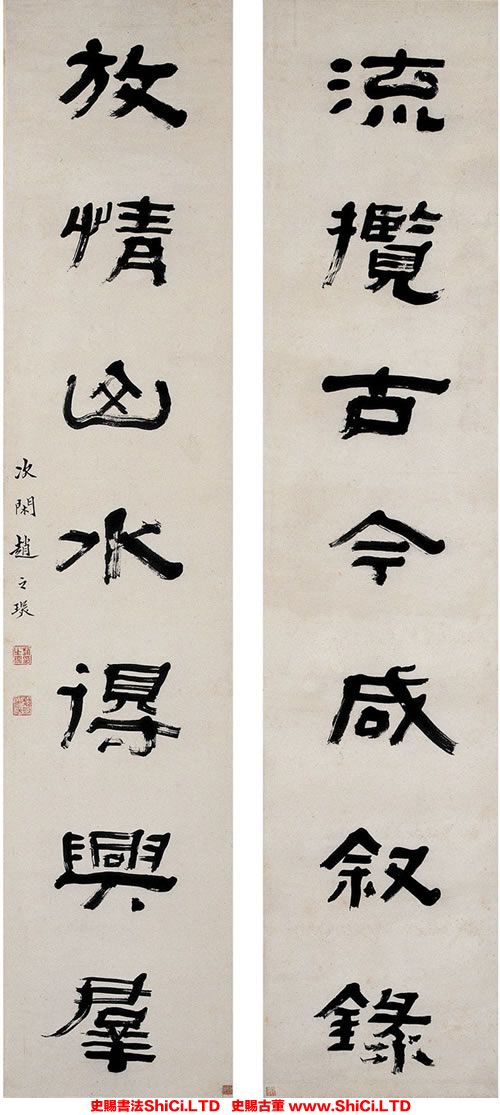 流攬古今咸敘錄
放情山水得興羣
次閑趙之琛
史賜書法ShiCi.LTD 史賜古董 www.ShiCi.LTD